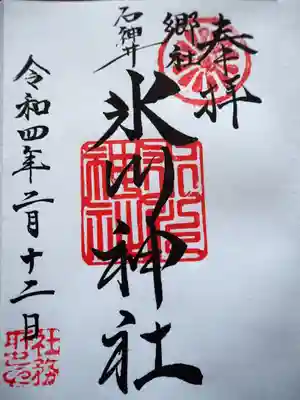 奉拝
郷社
石神井
氷川神社
令和四年二月十二日
氷川神社
社務所